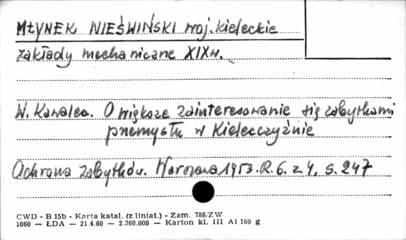 MŁYNEK NIEŚWIŃSKI woj. kieleckie
zakłady mechaniczne XIX w.
W. Kowalec. O większe zainteresowanie się zabytkami
przemysłu w Kielecczyźnie
Ochrona Zabytków. Warszawa 1953. R. 6. z. 4, s. 247
CWD - B 15b - Karta katal. (z liniat.) - Zam. 788/ZW
1060 — ŁDA — 21.4.60 — 2.360.000 — Karton kl. III A1 160 g